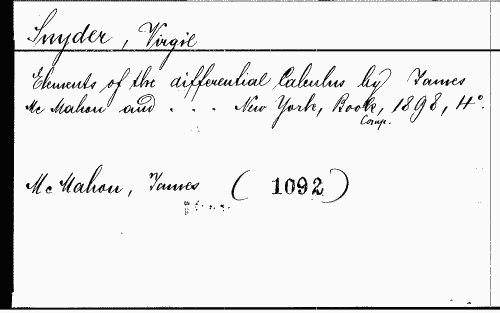 Snyder, Virgil
Elements of the differential Calculus by James
Mc Mahon and . . . New York, Book, 1898, 4°.
Comp.
Mc Mahon, James (1092)